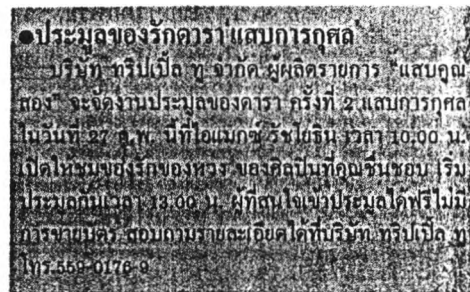 ●ประมูลของรักดารา'แสบการกุศล'
บริษัท ทริปเปิ้ล ทู จำกัด ผู้ผลิตรายการ "แสบคูณ
สอง" จะจัดงานประมูลของดารา ครั้งที่ 2 แสบการกุศล
ในวันที่ 27 ต.พ. นี้ที่ไอแมกซ์ รัชโยธิน เวลา 10.00 น.
เปิดให้ชมของรักของหวง ของศิลปินที่คุณชื่นชอบ เริ่ม
ประมูลกันเวลา 13.00 น. ผู้ที่สนใจเข้าประมูลได้ฟรีไม่มี
การขายบัตร สอบถามรายละเอียดได้ที่บริษัท ทริปเปิ้ล ทู
โทร.559-0176-9